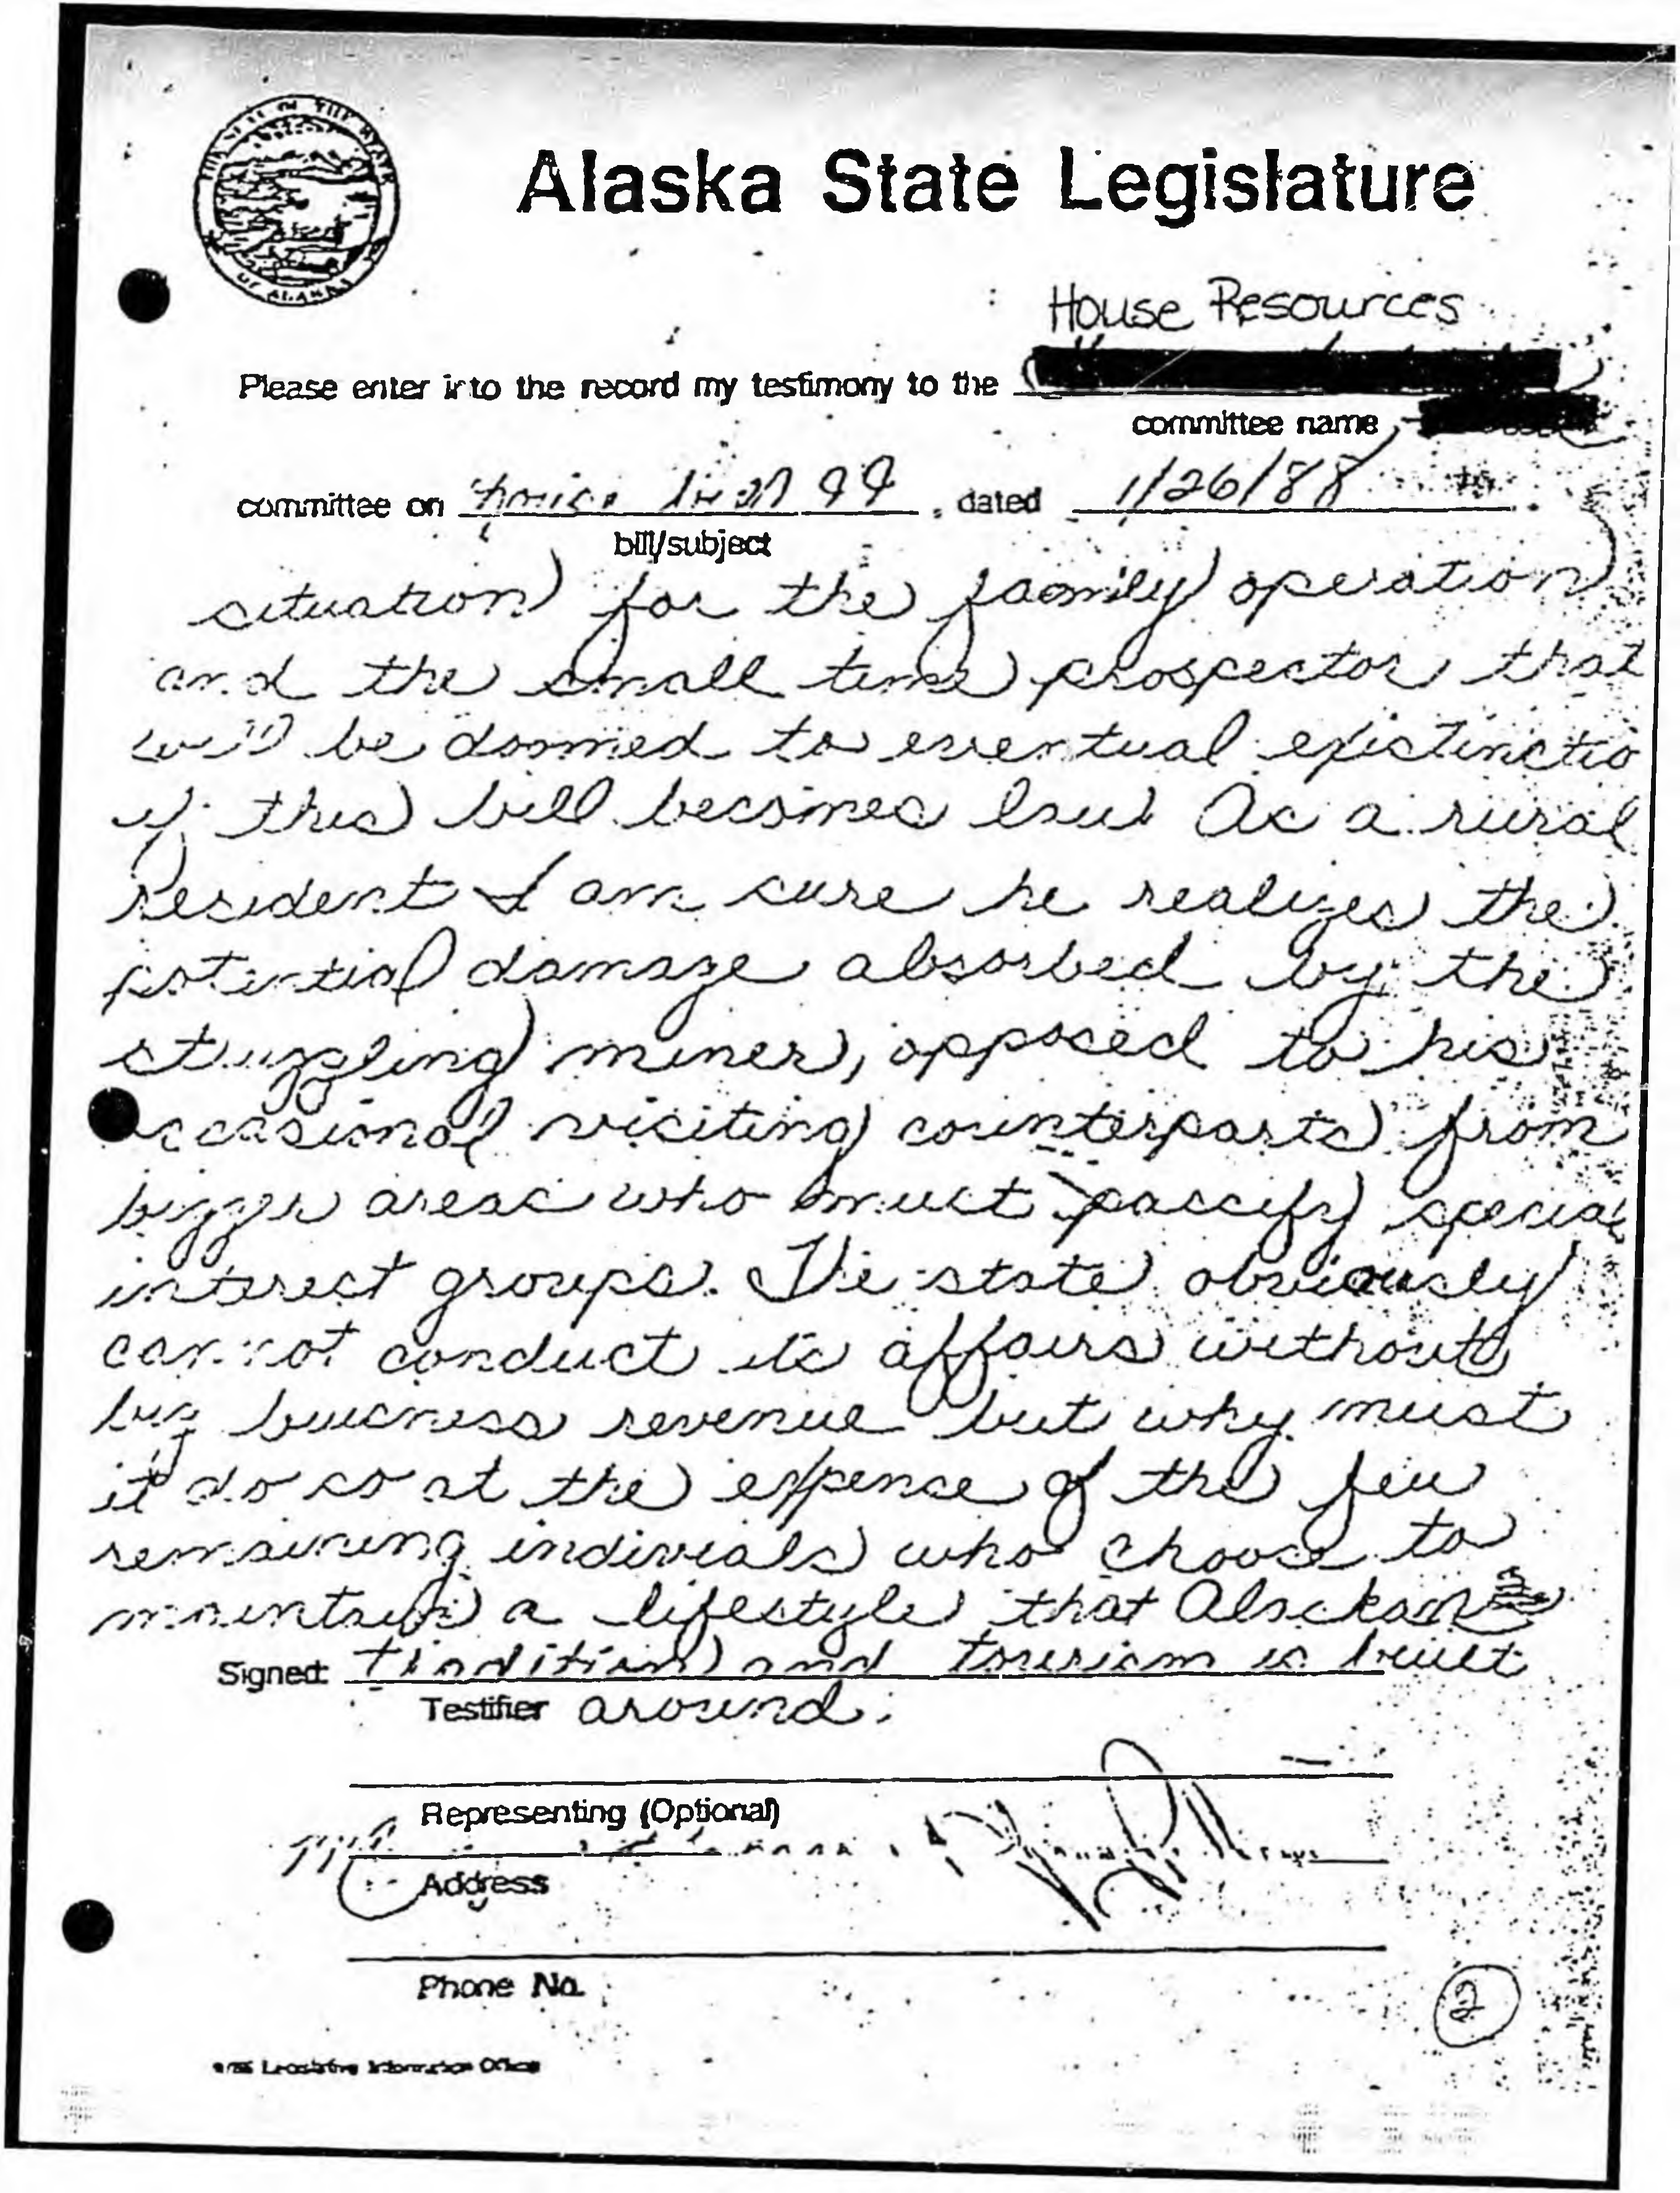 THE SEAL OF THE STATE
OF ALASKA
Alaska State Legislature
House Resources
Please enter into the record my testimony to the
committee name
committee on house bill 99, dated 1/26/88
bill/subject
situation for the family operation
and the small time prospector that
will be doomed to eventual existinctio
if this bill becomes law. As a rural
resident I am sure he realizes the
potential damage absorbed by the
struggling miner, opposed to his
occasional visiting counterparts from
bigger areas who must paccify special
interest groups. The state obviously
cannot conduct its affairs without
big business revenue but why must
it do so at the expense of the few
remaining indivials who choose to
maintain a lifestyle that Alaskan
Signed: tradition and tourism is built
Testifier around.
Representing (Optional)
Address
Phone No.
Legislative Information Office
2